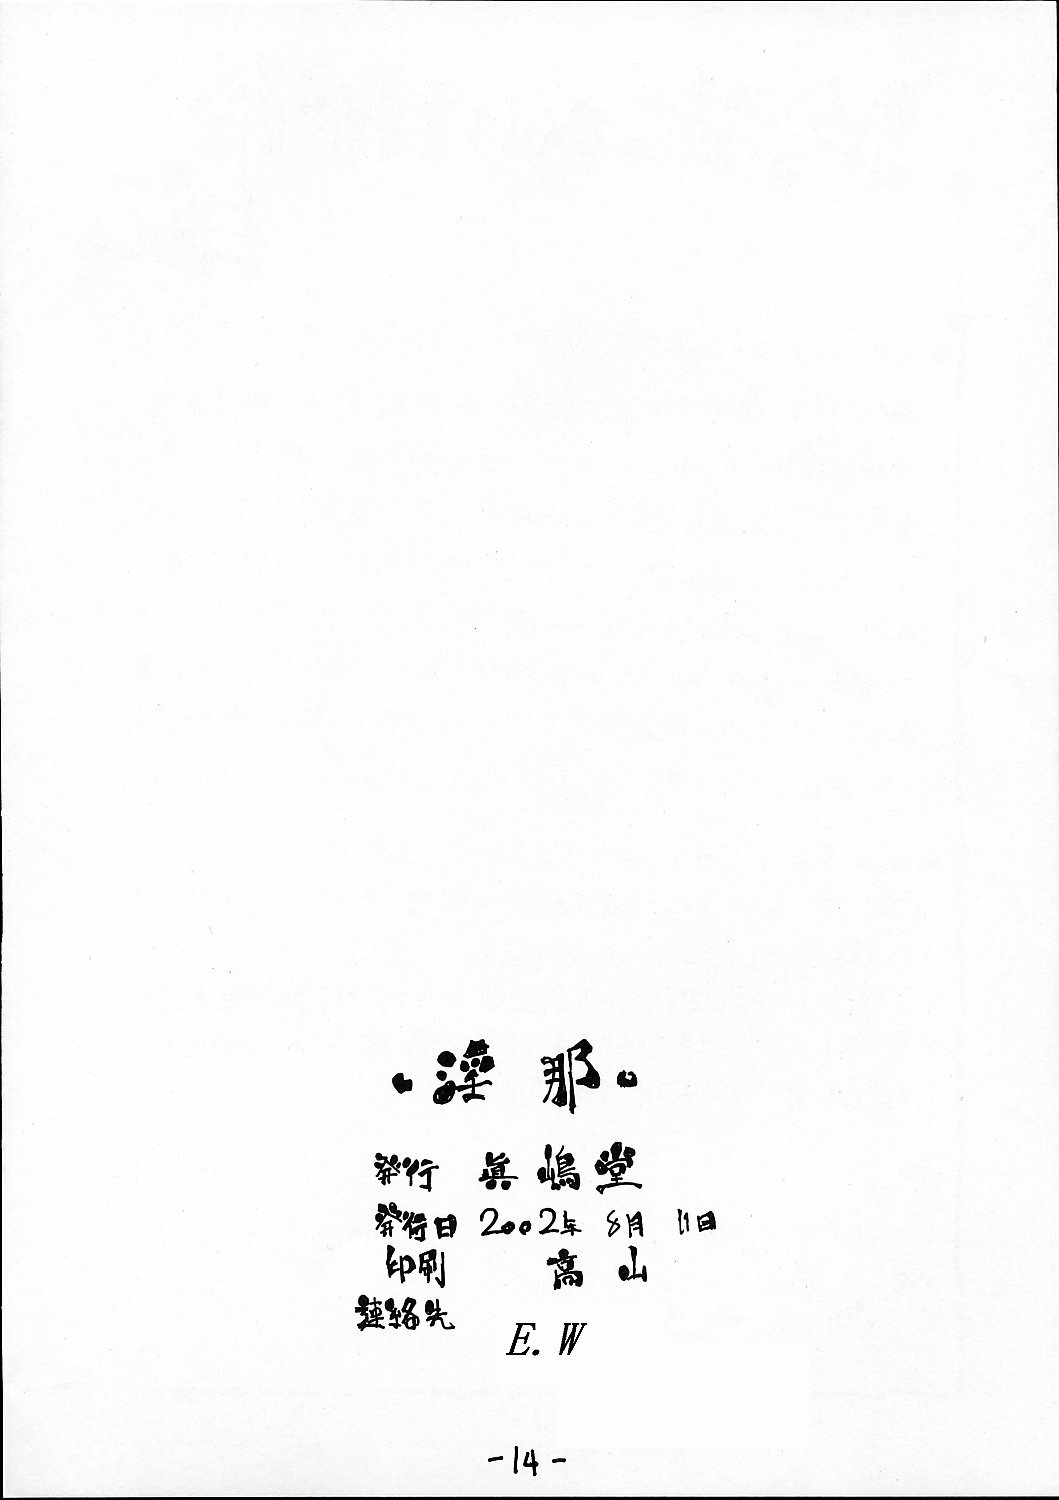 ・淫那。
発行 眞嶋堂
発行日 2002年 8月 11日
印刷 高山
連絡先
E.W
-14-